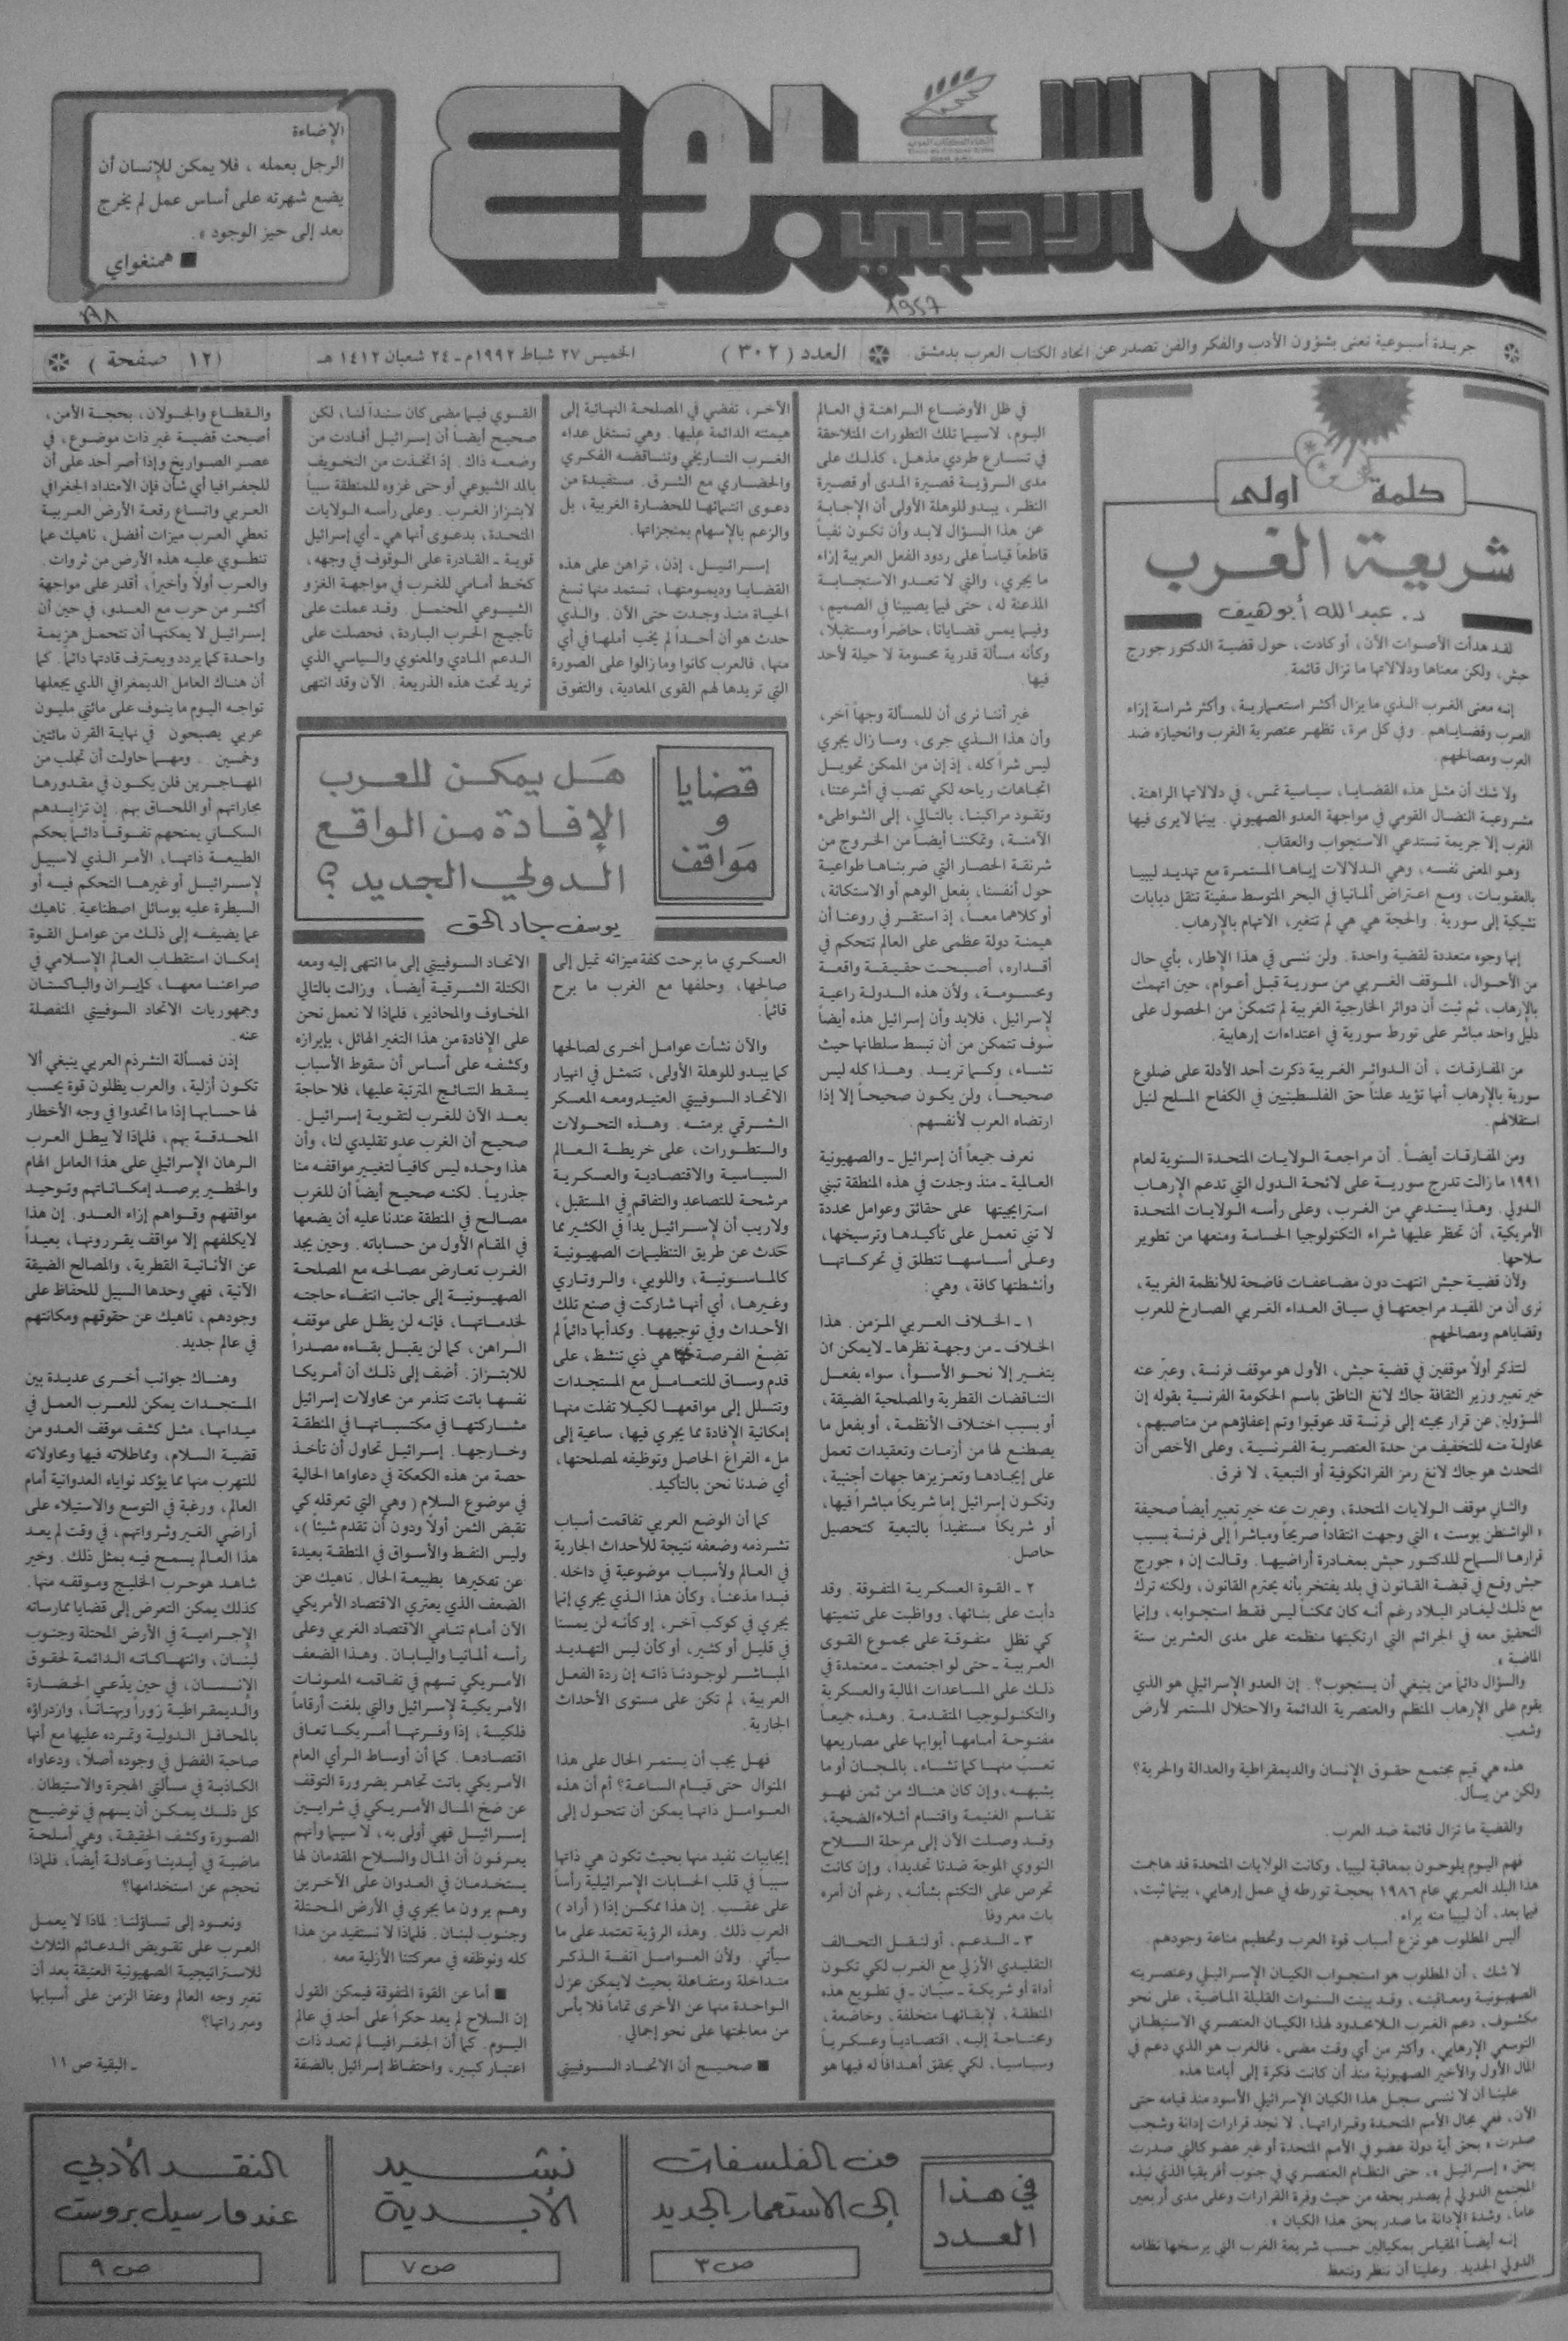 الاسبوع
الأدبي
الإضاءة
الرجل بعمله ، فلا يمكن للإنسان أن
يضع شهرته على أساس عمل لم يخرج
بعد إلى حيز الوجود » .
■ همنغواي
1957
جريدة أسبوعية تعنى بشؤون الأدب والفكر والفن تصدر عن اتحاد الكتاب العرب بدمشق .
العدد ( ٣٠٢ )
الخميس ٢٧ شباط ١٩٩٢م ـ ٢٤ شعبان ١٤١٢ هـ
( ١٢ صفحة )
كلمة أولى
شريعة الغرب
د. عبد الله أبو هيف
لقد هدأت الأصوات الآن، أو كادت، حول قضية الدكتور جورج
حبش، ولكن معناها ودلالاتها ما تزال قائمة.
إنه معنى الغرب الذي ما يزال أكثر استعمارية، وأكثر شراسة إزاء
العرب وقضاياهم. وفي كل مرة، تظهر عنصرية الغرب وانحيازه ضد
العرب ومصالحهم.
ولا شك أن مثل هذه القضايا، سياسية تمس، في دلالاتها الراهنة،
مشروعية النضال القومي في مواجهة العدو الصهيوني. بينما لا يرى فيها
الغرب إلا جريمة تستدعي الاستجواب والعقاب.
وهو المعنى نفسه، وهي الدلالات إياها المستمرة مع تهديد ليبيا
بالعقوبات، ومع اعتراض ألمانيا في البحر المتوسط سفينة تنقل دبابات
تشيكية إلى سورية. والحجة هي هي لم تتغير، الاتهام بالإرهاب.
إنها وجوه متعددة لقضية واحدة. ولن ننسى في هذا الإطار، بأي حال
من الأحوال، الموقف الغربي من سورية قبل أعوام، حين اتهمت
بالإرهاب، ثم ثبت أن دوائر الخارجية الغربية لم تتمكن من الحصول على
دليل واحد مباشر على تورط سورية في اعتداءات إرهابية.
من المفارقات ، أن الدوائر الغربية ذكرت أحد الأدلة على ضلوع
سورية بالإرهاب أنها تؤيد علناً حق الفلسطينيين في الكفاح المسلح لنيل
استقلالهم.
ومن المفارقات أيضاً. أن مراجعة الولايات المتحدة السنوية لعام
١٩٩١ ما زالت تدرج سورية على لائحة الدول التي تدعم الإرهاب
الدولي. وهذا يستدعي من الغرب، وعلى رأسه الولايات المتحدة
الأمريكية، أن تحظر عليها شراء التكنولوجيا الحساسة ومنعها من تطوير
سلاحها.
ولأن قضية حبش انتهت دون مضاعفات فاضحة للأنظمة الغربية،
نرى أن من المفيد مراجعتها في سياق العداء الغربي الصارخ للعرب
وقضاياهم ومصالحهم.
لنتذكر أولاً موقفين في قضية حبش، الأول هو موقف فرنسة، وعبّر عنه
خير تعبير وزير الثقافة جاك لانغ الناطق باسم الحكومة الفرنسية بقوله إن
المسؤولين عن قرار مجيئه إلى فرنسة قد عوقبوا وتم إعفاؤهم من مناصبهم،
محاولة منه للتخفيف من حدة العنصرية الفرنسية، وعلى الأخص أن
المتحدث هو جاك لانغ رمز الفرانكوفية أو التبعية، لا فرق.
والثاني موقف الولايات المتحدة، وعبرت عنه خير تعبير أيضاً صحيفة
« الواشنطن بوست » التي وجهت انتقاداً صريحاً ومباشراً إلى فرنسة بسبب
قرارها السماح للدكتور حبش بمغادرة أراضيها. وقالت إن « جورج
حبش وقع في قبضة القانون في بلد يفتخر بأنه يحترم القانون، ولكنه ترك
مع ذلك ليغادر البلاد رغم أنه كان ممكناً ليس فقط استجوابه، وإنما
التحقيق معه في الجرائم التي ارتكبتها منظمته على مدى العشرين سنة
الماضية »
والسؤال دائماً من ينبغي أن يستجوب؟. إن العدو الإسرائيلي هو الذي
يقوم على الإرهاب المنظم والعنصرية الدائمة والاحتلال المستمر لأرض
وشعب.
هذه هي قيم مجتمع حقوق الإنسان والديمقراطية والعدالة والحرية؟
ولكن من يسأل.
والقضية ما تزال قائمة ضد العرب.
فهم اليوم يلوحون بمعاقبة ليبيا، وكانت الولايات المتحدة قد هاجمت
هذا البلد العربي عام ١٩٨٦ بحجة تورطه في عمل إرهابي، بينما ثبت،
فيما بعد، أن ليبيا منه براء.
أليس المطلوب هو نزع أسباب قوة العرب وتحطيم مناعة وجودهم.
لا شك ، أن المطلوب هو استجواب الكيان الإسرائيلي وعنصريته
الصهيونية ومعاقبته، وقد بينت السنوات القليلة الماضية، على نحو
مكشوف، دعم الغرب اللامحدود لهذا الكيان العنصري الاستيطاني
التوسعي الإرهابي، وأكثر من أي وقت مضى، فالغرب هو الذي دعم في
المآل الأول والأخير الصهيونية منذ أن كانت فكرة إلى أيامنا هذه.
علينا أن لا ننسى سجل هذا الكيان الإسرائيلي الأسود منذ قيامه حتى
الآن، ففي مجال الأمم المتحدة وقراراتها، لا نجد قرارات إدانة وشجب
صدرت « بحق أية دولة عضو في الأمم المتحدة أو غير عضو كالتي صدرت
بحق « إسرائيل »، حتى النظام العنصري في جنوب أفريقيا الذي نبذه
المجتمع الدولي لم يصدر بحقه من حيث وفرة القرارات وعلى مدى أربعين
عاماً، وشدة الإدانة ما صدر بحق هذا الكيان ».
إنه أيضاً المقياس بمكيالين حسب شريعة الغرب التي يرسخها نظامه
الدولي الجديد. وعلينا أن ننظر ونتعظ
قضايا
و
مواقف
هل يمكن للعرب
الإفادة من الواقع
الدولي الجديد ؟
يوسف جاد الحق
في ظل الأوضاع الراهنة في العالم
اليوم، لاسيما تلك التطورات المتلاحقة
في تسارع طردي مذهل، كذلك على
مدى الرؤية قصيرة المدى أو قصيرة
النظر، يبدو للوهلة الأولى أن الإجابة
عن هذا السؤال لابد وأن تكون نفياً
قاطعاً قياساً على ردود الفعل العربية إزاء
ما يجري، والتي لا تعدو الاستجابة
المذعنة له، حتى فيما يصيبنا في الصميم،
وفيما يمس قضايانا، حاضراً ومستقبلاً،
وكأنه مسألة قدرية محسومة لا حيلة لأحد
فيها.
غير أننا نرى أن للمسألة وجهاً آخر،
وأن هذا الذي جرى، وما زال يجري
ليس شراً كله، إذ إن من الممكن تحويل
اتجاهات رياحه لكي تصب في أشرعتنا،
وتقود مراكبنا، بالتالي، إلى الشواطىء
الآمنة، وتمكننا أيضاً من الخروج من
شرنقة الحصار التي ضربناها طواعية
حول أنفسنا، بفعل الوهم أو الاستكانة،
أو كلاهما معاً، إذ استقر في روعنا أن
هيمنة دولة عظمى على العالم تتحكم في
أقداره، أصبحت حقيقة واقعة
ومحسومة، ولأن هذه الدولة راعية
لإسرائيل، فلابد وأن إسرائيل هذه أيضاً
سوف تتمكن من أن تبسط سلطانها حيث
تشاء، وكما تريد. وهذا كله ليس
صحيحاً، ولن يكون صحيحاً إلا إذا
ارتضاه العرب لأنفسهم.
نعرف جميعاً أن إسرائيل ـ والصهيونية
العالمية ـ منذ وجدت في هذه المنطقة تبني
استراتيجيتها على حقائق وعوامل محددة
لا تني تعمل على تأكيدها وترسيخها،
وعلى أساسها تنطلق في تحركاتها
وأنشطتها كافة، وهي:
١ ـ الخلاف العربي المزمن. هذا
الخلاف ـ من وجهة نظرها ـ لا يمكن أن
يتغير إلا نحو الأسوأ، سواء بفعل
التناقضات القطرية والمصلحية الضيقة،
أو بسبب اختلاف الأنظمة، أو بفعل ما
يصطنع لها من أزمات وتعقيدات تعمل
على إيجادها وتعزيزها جهات أجنبية،
وتكون إسرائيل إما شريكاً مباشراً فيها،
أو شريكاً مستفيداً بالتبعية كتحصيل
حاصل.
٢ ـ القوة العسكرية المتفوقة. وقد
دأبت على بنائها، وواظبت على تنميتها
كي تظل متفوقة على مجموع القوى
العربية ـ حتى لو اجتمعت ـ معتمدة في
ذلك على المساعدات المالية والعسكرية
والتكنولوجيا المتقدمة. وهذه جميعاً
مفتوحة أمامها أبوابها على مصاريعها
تعب منها كما تشاء، بالمجان أو ما
يشبهه، وإن كان هناك من ثمن فهو
تقاسم الغنيمة واقتسام أشلاء الضحية،
وقد وصلت الآن إلى مرحلة السلاح
النووي الموجة ضدنا تحديداً، وإن كانت
تحرص على التكتم بشأنه، رغم أن أمره
بات معروفا.
٣ ـ الدعم، أو لنقل التحالف
التقليدي الأزلي مع الغرب لكي تكون
أداة أو شريكة ـ سيان ـ في تطويع هذه
المنطقة، لإبقائها متخلفة، وخاضعة،
ومحتاجة إليه، اقتصادياً وعسكرياً
وسياسيا، لكي يحقق أهدافاً له فيها هو
الآخر، تفضي في المصلحة النهائية إلى
هيمنته الدائمة عليها. وهي تستغل عداء
الغرب التاريخي وتناقضه الفكري
والحضاري مع الشرق. مستفيدة من
دعوى انتمائها للحضارة الغربية، بل
والزعم بالإسهام بمنجزاتها.
إسرائيل، إذن، تراهن على هذه
القضايا وديمومتها، تستمد منها نسغ
الحياة منذ وجدت حتى الآن. والذي
حدث هو أن أحداً لم يخيب أملها في أي
منها، فالعرب كانوا وما زالوا على الصورة
التي تريدها لهم القوى المعادية، والتفوق
العسكري ما برحت كفة ميزانه تميل إلى
صالحها، وحلفها مع الغرب ما برح
قائماً.
والآن نشأت عوامل أخرى لصالحها
كما يبدو للوهلة الأولى، تتمثل في انهيار
الاتحاد السوفييتي العتيد ومعه المعسكر
الشرقي برمته. وهذه التحولات
والتطورات، على خريطة العالم
السياسية والاقتصادية والعسكرية
مرشحة للتصاعد والتفاقم في المستقبل،
ولا ريب أن لإسرائيل يداً في الكثير مما
حَدث عن طريق التنظيمات الصهيونية
كالماسونية، واللوبي، والروتاري
وغيرها، أي أنها شاركت في صنع تلك
الأحداث وفي توجيهها. وكدأبها دائماً لم
تضع الفرصة هي ذي تنشط، على
قدم وساق للتعامل مع المستجدات
وتتسلل إلى مواقعها لكيلا تفلت منها
إمكانية الإفادة مما يجري فيها، ساعية إلى
ملء الفراغ الحاصل وتوظيفه لمصلحتها،
أي ضدنا نحن بالتأكيد.
كما أن الوضع العربي تفاقمت أسباب
تشرذمه وضعفه نتيجة للأحداث الجارية
في العالم ولأسباب موضوعية في داخله.
فبدا مذعناً، وكأن هذا الذي يجري إنما
يجري في كوكب آخر، أو كأنه لن يمسنا
في قليل أو كثير، أو كأن ليس التهديد
المباشر لوجودنا ذاته إن ردة الفعل
العربية، لم تكن على مستوى الأحداث
الجارية.
فهل يجب أن يستمر الحال على هذا
المنوال حتى قيام الساعة؟ أم أن هذه
العوامل ذاتها يمكن أن تتحول إلى
إيجابيات تفيد منها بحيث تكون هي ذاتها
سبباً في قلب الحسابات الإسرائيلية رأساً
على عقب. إن هذا ممكن إذا ( أراد )
العرب ذلك. وهذه الرؤية تعتمد على ما
سيأتي. ولأن العوامل آنفة الذكر
متداخلة ومتفاعلة بحيث لايمكن عزل
الواحدة منها عن الأخرى تماماً فلا بأس
من معالجتها على نحو إجمالي.
■ صحيح أن الاتحاد السوفييتي
القوي فيما مضى كان سنداً لنا، لكن
صحيح أيضاً أن إسرائيل أفادت من
وضعه ذاك. إذ اتخذت من التخويف
بالمد الشيوعي أو حتى غزوه للمنطقة سبباً
لابتزاز الغرب. وعلى رأسه الولايات
المتحدة، بدعوى أنها هي ـ أي إسرائيل
قوية ـ القادرة على الوقوف في وجهه،
كخط أمامي للغرب في مواجهة الغزو
الشيوعي المحتمل. وقد عملت على
تأجيج الحرب الباردة، فحصلت على
الدعم المادي والمعنوي والسياسي الذي
تريد تحت هذه الذريعة. الآن وقد انتهى
الاتحاد السوفييتي إلى ما انتهى إليه ومعه
الكتلة الشرقية أيضاً، وزالت بالتالي
المخاوف والمحاذير، فلماذا لا نعمل نحن
على الإفادة من هذا التغير الهائل، بإبرازه
وكشفه على أساس أن سقوط الأسباب
يسقط النتائج المترتبة عليها، فلا حاجة
بعد الآن للغرب لتقوية إسرائيل.
صحيح أن الغرب عدو تقليدي لنا، وأن
هذا وحده ليس كافياً لتغيير مواقفه منا
جذرياً. لكنه صحيح أيضاً أن للغرب
مصالح في المنطقة عندنا عليه أن يضعها
في المقام الأول من حساباته. وحين يجد
الغرب تعارض مصالحه مع المصلحة
الصهيونية إلى جانب انتفاء حاجته
لخدماتها، فإنه لن يظل على موقفه
الراهن، كما لن يقبل بقاءه مصدراً
للابتزاز. أضف إلى ذلك أن أمريكا
نفسها باتت تتذمر من محاولات إسرائيل
مشاركتها في مكتسباتها في المنطقة
وخارجها. إسرائيل تحاول أن تأخذ
حصة من هذه الكعكة في دعاواها الحالية
في موضوع السلام ( وهي التي تعرقله كي
تقبض الثمن أولاً ودون أن تقدم شيئاً )،
وليس النفط والأسواق في المنطقة بعيدة
عن تفكيرها بطبيعة الحال. ناهيك عن
الضعف الذي يعتري الاقتصاد الأمريكي
الآن أمام تنامي الاقتصاد الغربي وعلى
رأسه ألمانيا واليابان. وهذا الضعف
الأمريكي تسهم في تفاقمه المعونات
الأمريكية لإسرائيل والتي بلغت أرقاماً
فلكية، إذا وفرتها أمريكا تعافى
اقتصادها. كما أن أوساط الرأي العام
الأمريكي باتت تجاهر بضرورة التوقف
عن ضخ المال الأمريكي في شرايين
إسرائيل فهي أولى به، لا سيما وأنهم
يعرفون أن المال والسلاح المقدمان لها
يستخدمان في العدوان على الآخرين
وهم يرون ما يجري في الأرض المحتلة
وجنوب لبنان. فلماذا لا نستفيد من هذا
كله ونوظفه في معركتنا الأزلية معه.
■ أما عن القوة المتفوقة فيمكن القول
إن السلاح لم يعد حكراً على أحد في عالم
اليوم. كما أن الجغرافيا لم تعد ذات
اعتبار كبير، واحتفاظ إسرائيل بالضفة
والقطاع والجولان، بحجة الأمن،
أصبحت قضية غير ذات موضوع، في
عصر الصواريخ وإذا أصر أحد على أن
للجغرافيا أي شأن فإن الامتداد الجغرافي
العربي واتساع رقعة الأرض العربية
تعطي العرب ميزات أفضل، ناهيك عما
تنطوي عليه هذه الأرض من ثروات.
والعرب أولاً وأخيراً، أقدر على مواجهة
أكثر من حرب مع العدو، في حين أن
إسرائيل لا يمكنها أن تتحمل هزيمة
واحدة كما يردد ويعترف قادتها دائماً. كما
أن هناك العامل الديمغرافي الذي يجعلها
تواجه اليوم ما ينوف على مائتي مليون
عربي يصبحون في نهاية القرن مائتين
وخمسين . ومهما حاولت أن تجلب من
المهاجرين فلن يكون في مقدورها
مجاراتهم أو اللحاق بهم. إن تزايدهم
السكاني يمنحهم تفوقاً دائماً بحكم
الطبيعة ذاتها، الأمر الذي لاسبيل
لإسرائيل أو غيرها التحكم فيه أو
السيطرة عليه بوسائل اصطناعية. ناهيك
عما يضيفه إلى ذلك من عوامل القوة
إمكان استقطاب العالم الإسلامي في
صراعنا معها، كإيران والباكستان
وجمهوريات الاتحاد السوفييتي المنفصلة
عنه.
إذن فمسألة التشرذم العربي ينبغي ألا
تكون أزلية، والعرب يظلون قوة يحسب
لها حسابها إذا ما اتحدوا في وجه الأخطار
المحدقة بهم، فلماذا لا يبطل العرب
الرهان الإسرائيلي على هذا العامل الهام
والخطير برصد إمكاناتهم وتوحيد
مواقفهم وقواهم إزاء العدو. إن هذا
لايكلفهم إلا مواقف يقررونها، بعيداً
عن الأنانية القطرية، والمصالح الضيقة
الآنية، فهي وحدها السبيل للحفاظ على
وجودهم، ناهيك عن حقوقهم ومكانتهم
في عالم جديد.
وهناك جوانب أخرى عديدة بين
المستجدات يمكن للعرب العمل في
ميدانها، مثل كشف موقف العدو من
قضية السلام، ومماطلاته فيها ومحاولاته
للتهرب منها مما يؤكد نواياه العدوانية أمام
العالم، ورغبة في التوسع والاستيلاء على
أراضي الغير وثرواتهم، في وقت لم يعد
هذا العالم يسمح فيه بمثل ذلك. وخير
شاهد هو حرب الخليج وموقفه منها.
كذلك يمكن التعرض إلى قضايا ممارساته
الإجرامية في الأرض المحتلة وجنوب
لبنان، وانتهاكاته الدائمة لحقوق
الإنسان، في حين يدّعي الحضارة
والديمقراطية زوراً وبهتاناً، وازدراؤه
بالمحافل الدولية وتمرده عليها مع أنها
صاحبة الفضل في وجوده أصلاً، ودعاواه
الكاذبة في مسألتي الهجرة والاستيطان.
كل ذلك يمكن أن يسهم في توضيح
الصورة وكشف الحقيقة، وهي أسلحة
ماضية في أيدينا وعادلة أيضاً، فلماذا
نحجم عن استخدامها؟
ونعود إلى تساؤلنا: لماذا لا يعمل
العرب على تقويض الدعائم الثلاث
للاستراتيجية الصهيونية العتيقة بعد أن
تغير وجه العالم وعفا الزمن على أسبابها
ومبرراتها؟
ـ البقية ص ١١
في هذا
العدد
من الفلسفات
إلى الاستعمار الجديد
ص ٣
نشيد
الأبدية
ص ٧
النقد الأدبي
عند مارسيل بروست
ص ٩